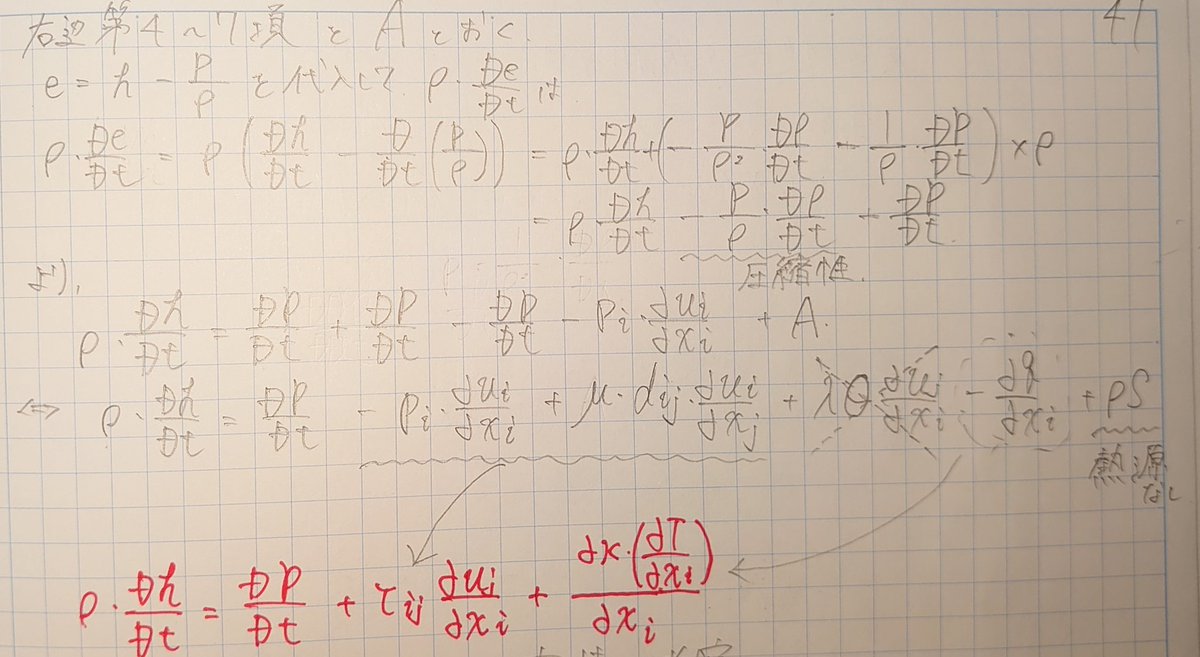 41
右辺第4〜7項をAとおく.
e = h - P/ρ を代入して, ρ・De/Dt は
ρ・De/Dt = ρ (Dh/Dt - D/Dt (P/ρ)) = ρ・Dh/Dt + (- P/ρ² Dρ/Dt - 1/ρ・DP/Dt) × ρ
= ρ・Dh/Dt - P/ρ・Dρ/Dt - DP/Dt.
圧縮性.
より,
ρ・Dh/Dt = DP/Dt + DP/Dt - DP/Dt - Pi・∂ui/∂xi + A.
⇔ ρ・Dh/Dt = DP/Dt - Pi・∂ui/∂xi + μ・dij・∂ui/∂xj + λΘ ∂ui/∂xi - ∂q/∂xi + ρS
熱源なし
ρ・Dh/Dt = DP/Dt + τij ∂ui/∂xi + ∂κ・(∂T/∂xi)/∂xi